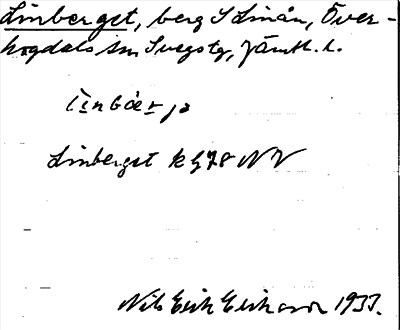 Linberget, berg S Linån, Över-
hogdals sn Svegs tg, Jämtl. l.
Linberget kbl 78 NV
Nils Erik Erikson 1933.